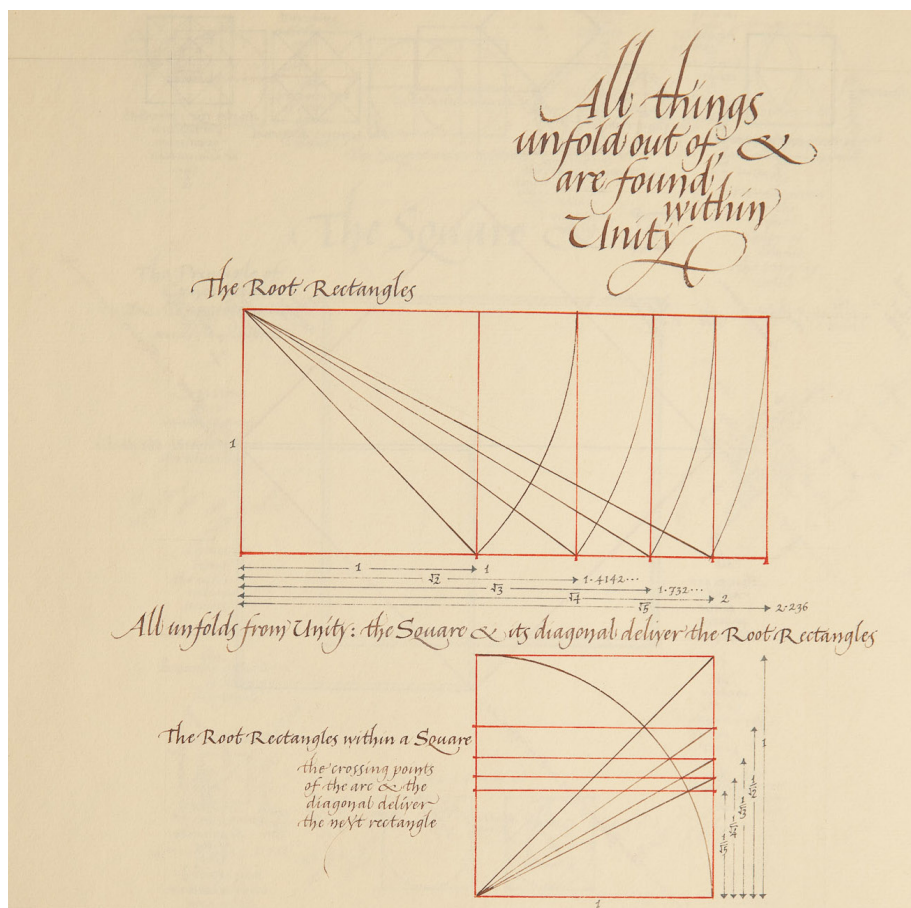 All things
unfold out of, &
are found
within
Unity
The Root Rectangles
1
1 1
√2 1·4142...
√3 1·732...
√4 2
√5 2·236
All unfolds from Unity: the Square & its diagonal deliver the Root Rectangles
The Root Rectangles within a Square
the crossing points
of the arc & the
diagonal deliver
the next rectangle
1
1/√2
1/√3
1/√4
1/√5
1